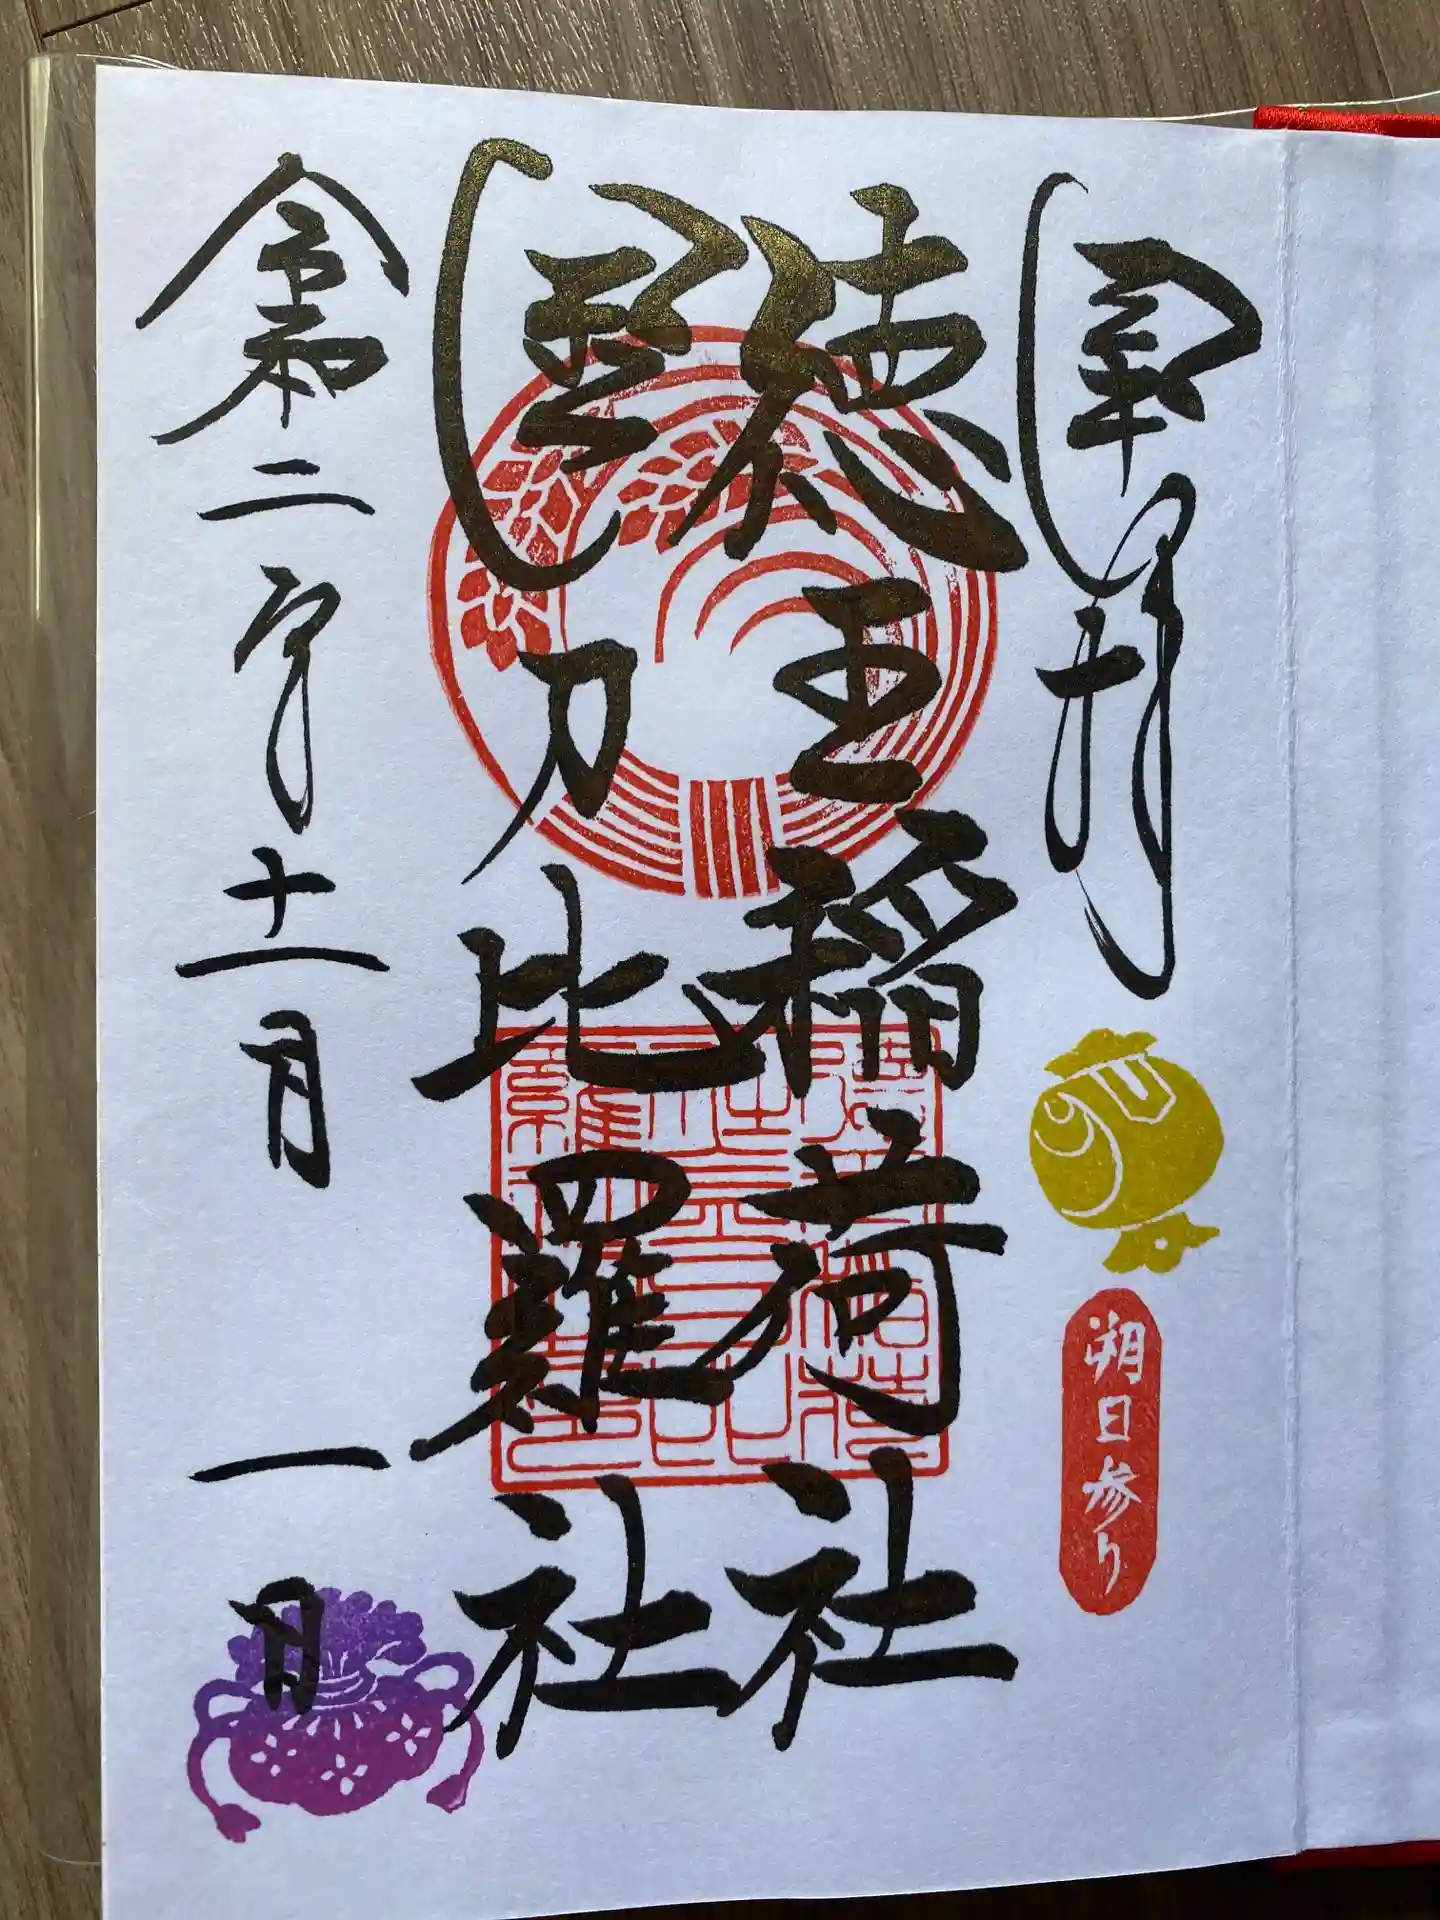 奉拝
朔日参り
徳王稲荷社
金刀比羅社
令和二年十一月 一日